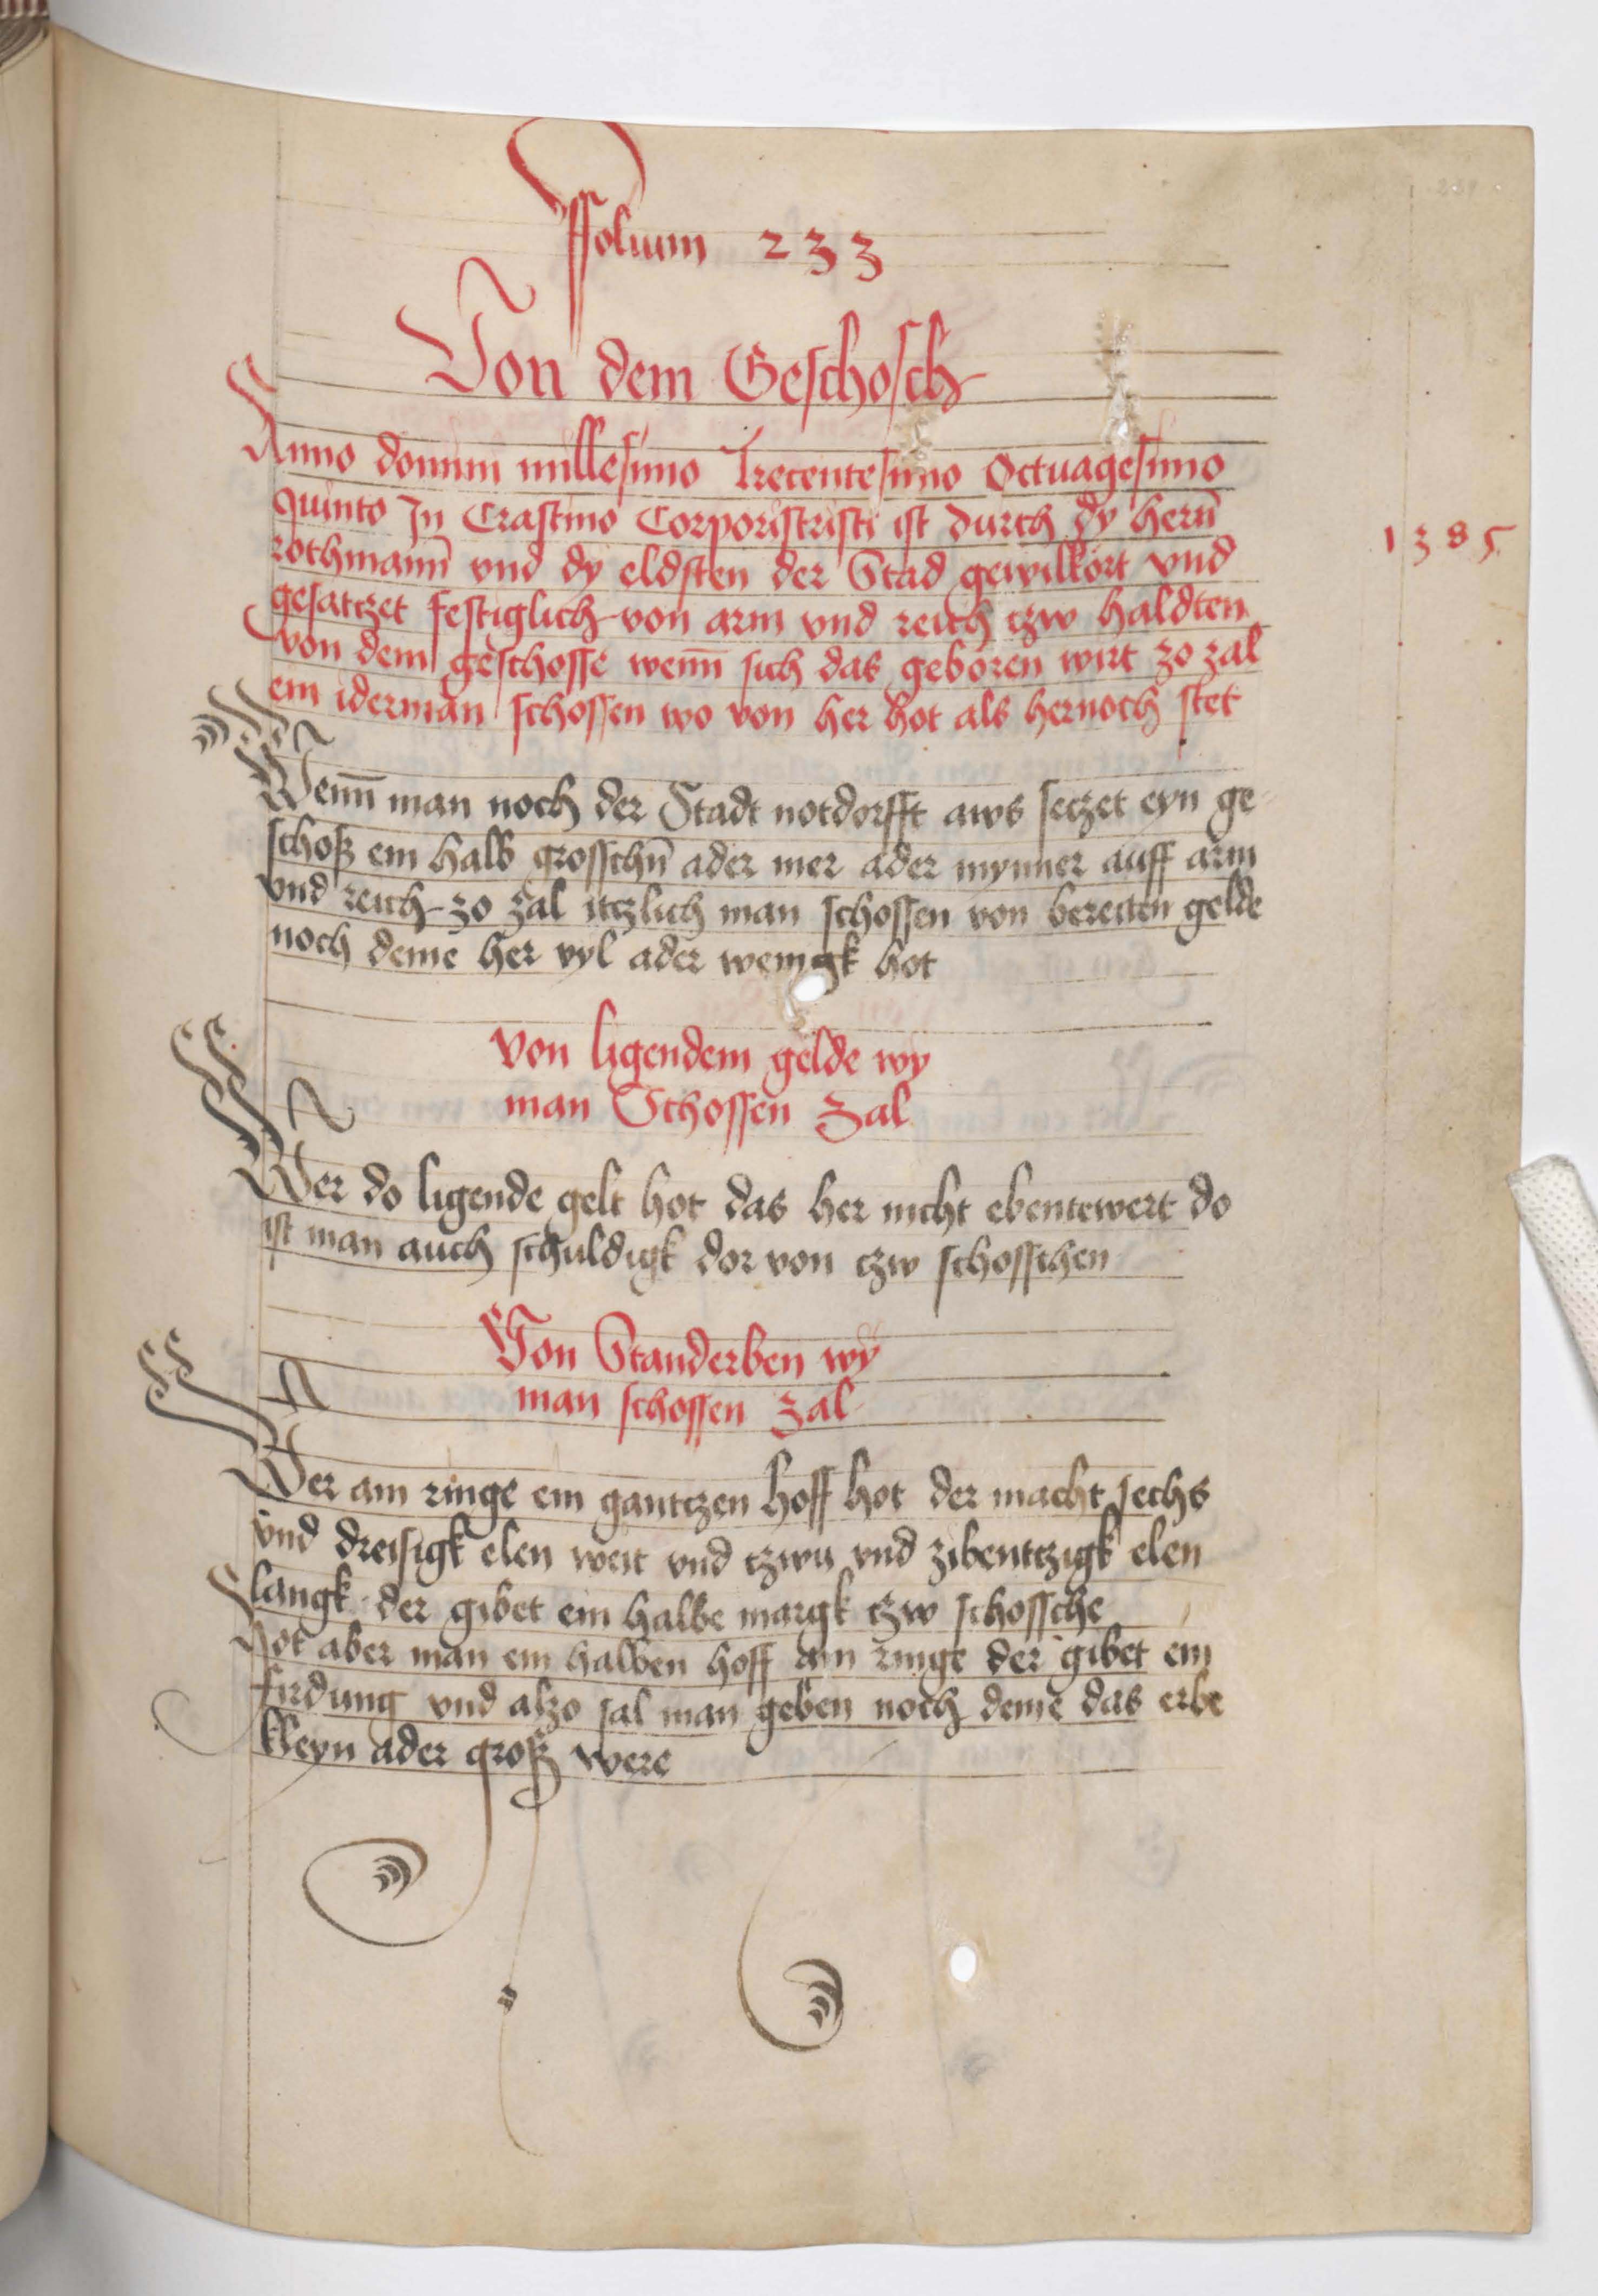 Ffolium 233
Von dem Geschosch
Anno domini millesimo Trecentesimo Octuagesimo
quinto In Crastino Corporiscristi ist durch dy hern̄
rothmann̄ vnd dy eldsten der Stad gewilkort vnd
1385
gesatczet festiglich von arm vnd reich czw haldten
von dem geschosse wenn̄ sich das geboren wirt zo zal
ein iderman schossen wo von her hot als hernoch stet
Wenn̄ man noch der Stadt notdorfft aws seczet eyn ge
schoß ein halb grosschn̄ ader mer ader mynner auff arm
vnd reich zo zal itczlich man schossen von bereiten gelde
noch deme her vyl ader wenigk hot
Von ligendem gelde wy
man Schossen zal
Wer do ligende gelt hot das her nicht ebentewert do
ist man auch schuldigk dor von czw schosschen
Von Standerben wy
man schossen zal
Wer am ringe ein gantczen hoff hot der macht sechs
vnd dreisigk elen weit vnd czwu vnd zibentczigk elen
langk der gibet ein halbe margk czw schossche
Hot aber man ein halben hoff am ringe der gibet ein
firdung vnd alzo sal man geben noch deme das erbe
kleyn ader groß were